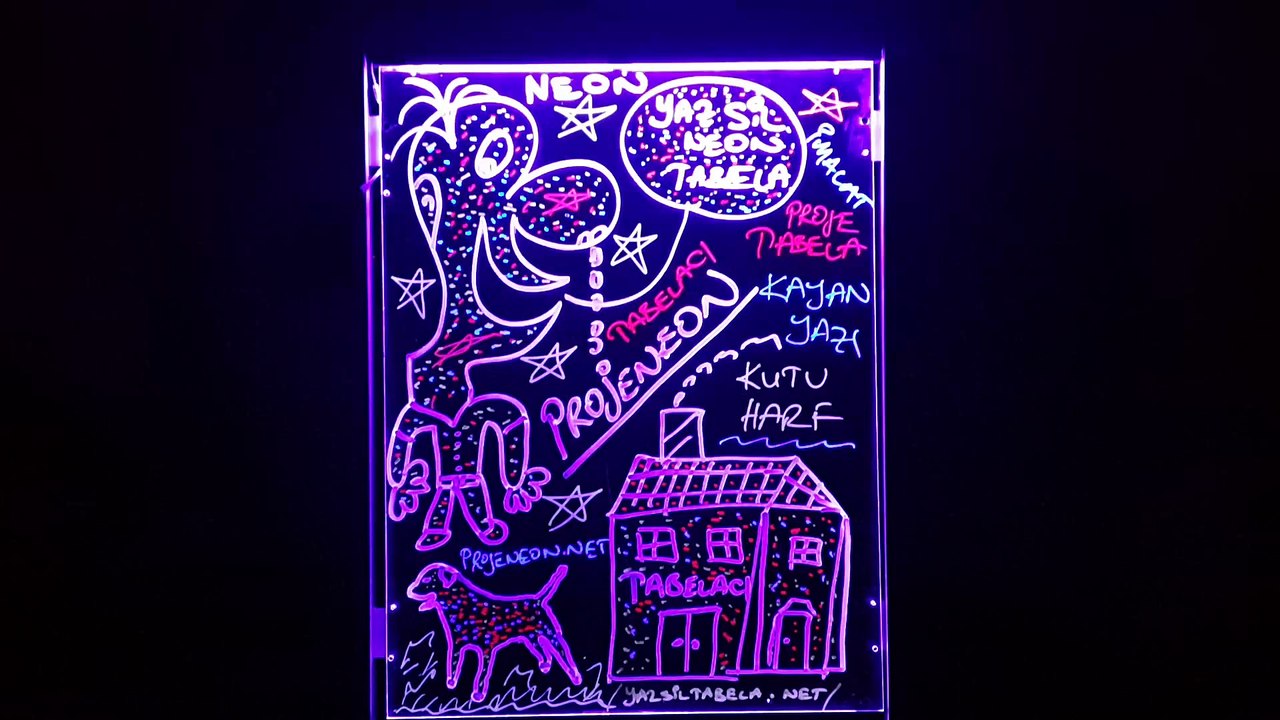 NEON
YAZ SİL
NEON
TABELA
İMALAT
PROJE
TABELA
TABELACI
PROJENEON
KAYAN
YAZI
KUTU
HARF
PROJENEON.NET
TABELACI
/YAZSİLTABELA.NET/